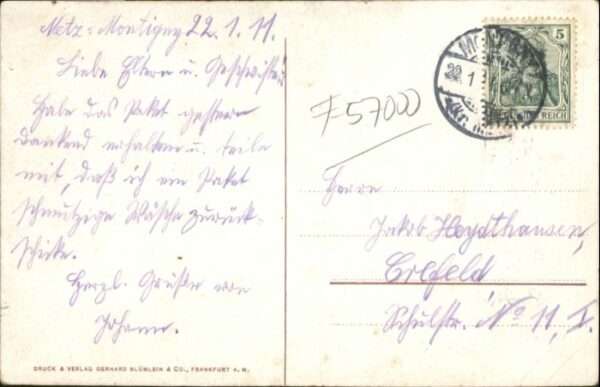 Metz-Montigny 22.1.11.
Liebe Eltern u. Geschwister
Habe das Paket gestern
dankend erhalten u. teile
mit, daß ich ein Paket
schmutzige Wäsche zurück-
schicke.
Herzl. Grüße von
Johann.
F 57000
5
REICH
Herrn
Jakob Heydthausen,
Crefeld
Schulstr. No 11, I.
DRUCK & VERLAG GERHARD BLÜMLEIN & CO., FRANKFURT A. M.